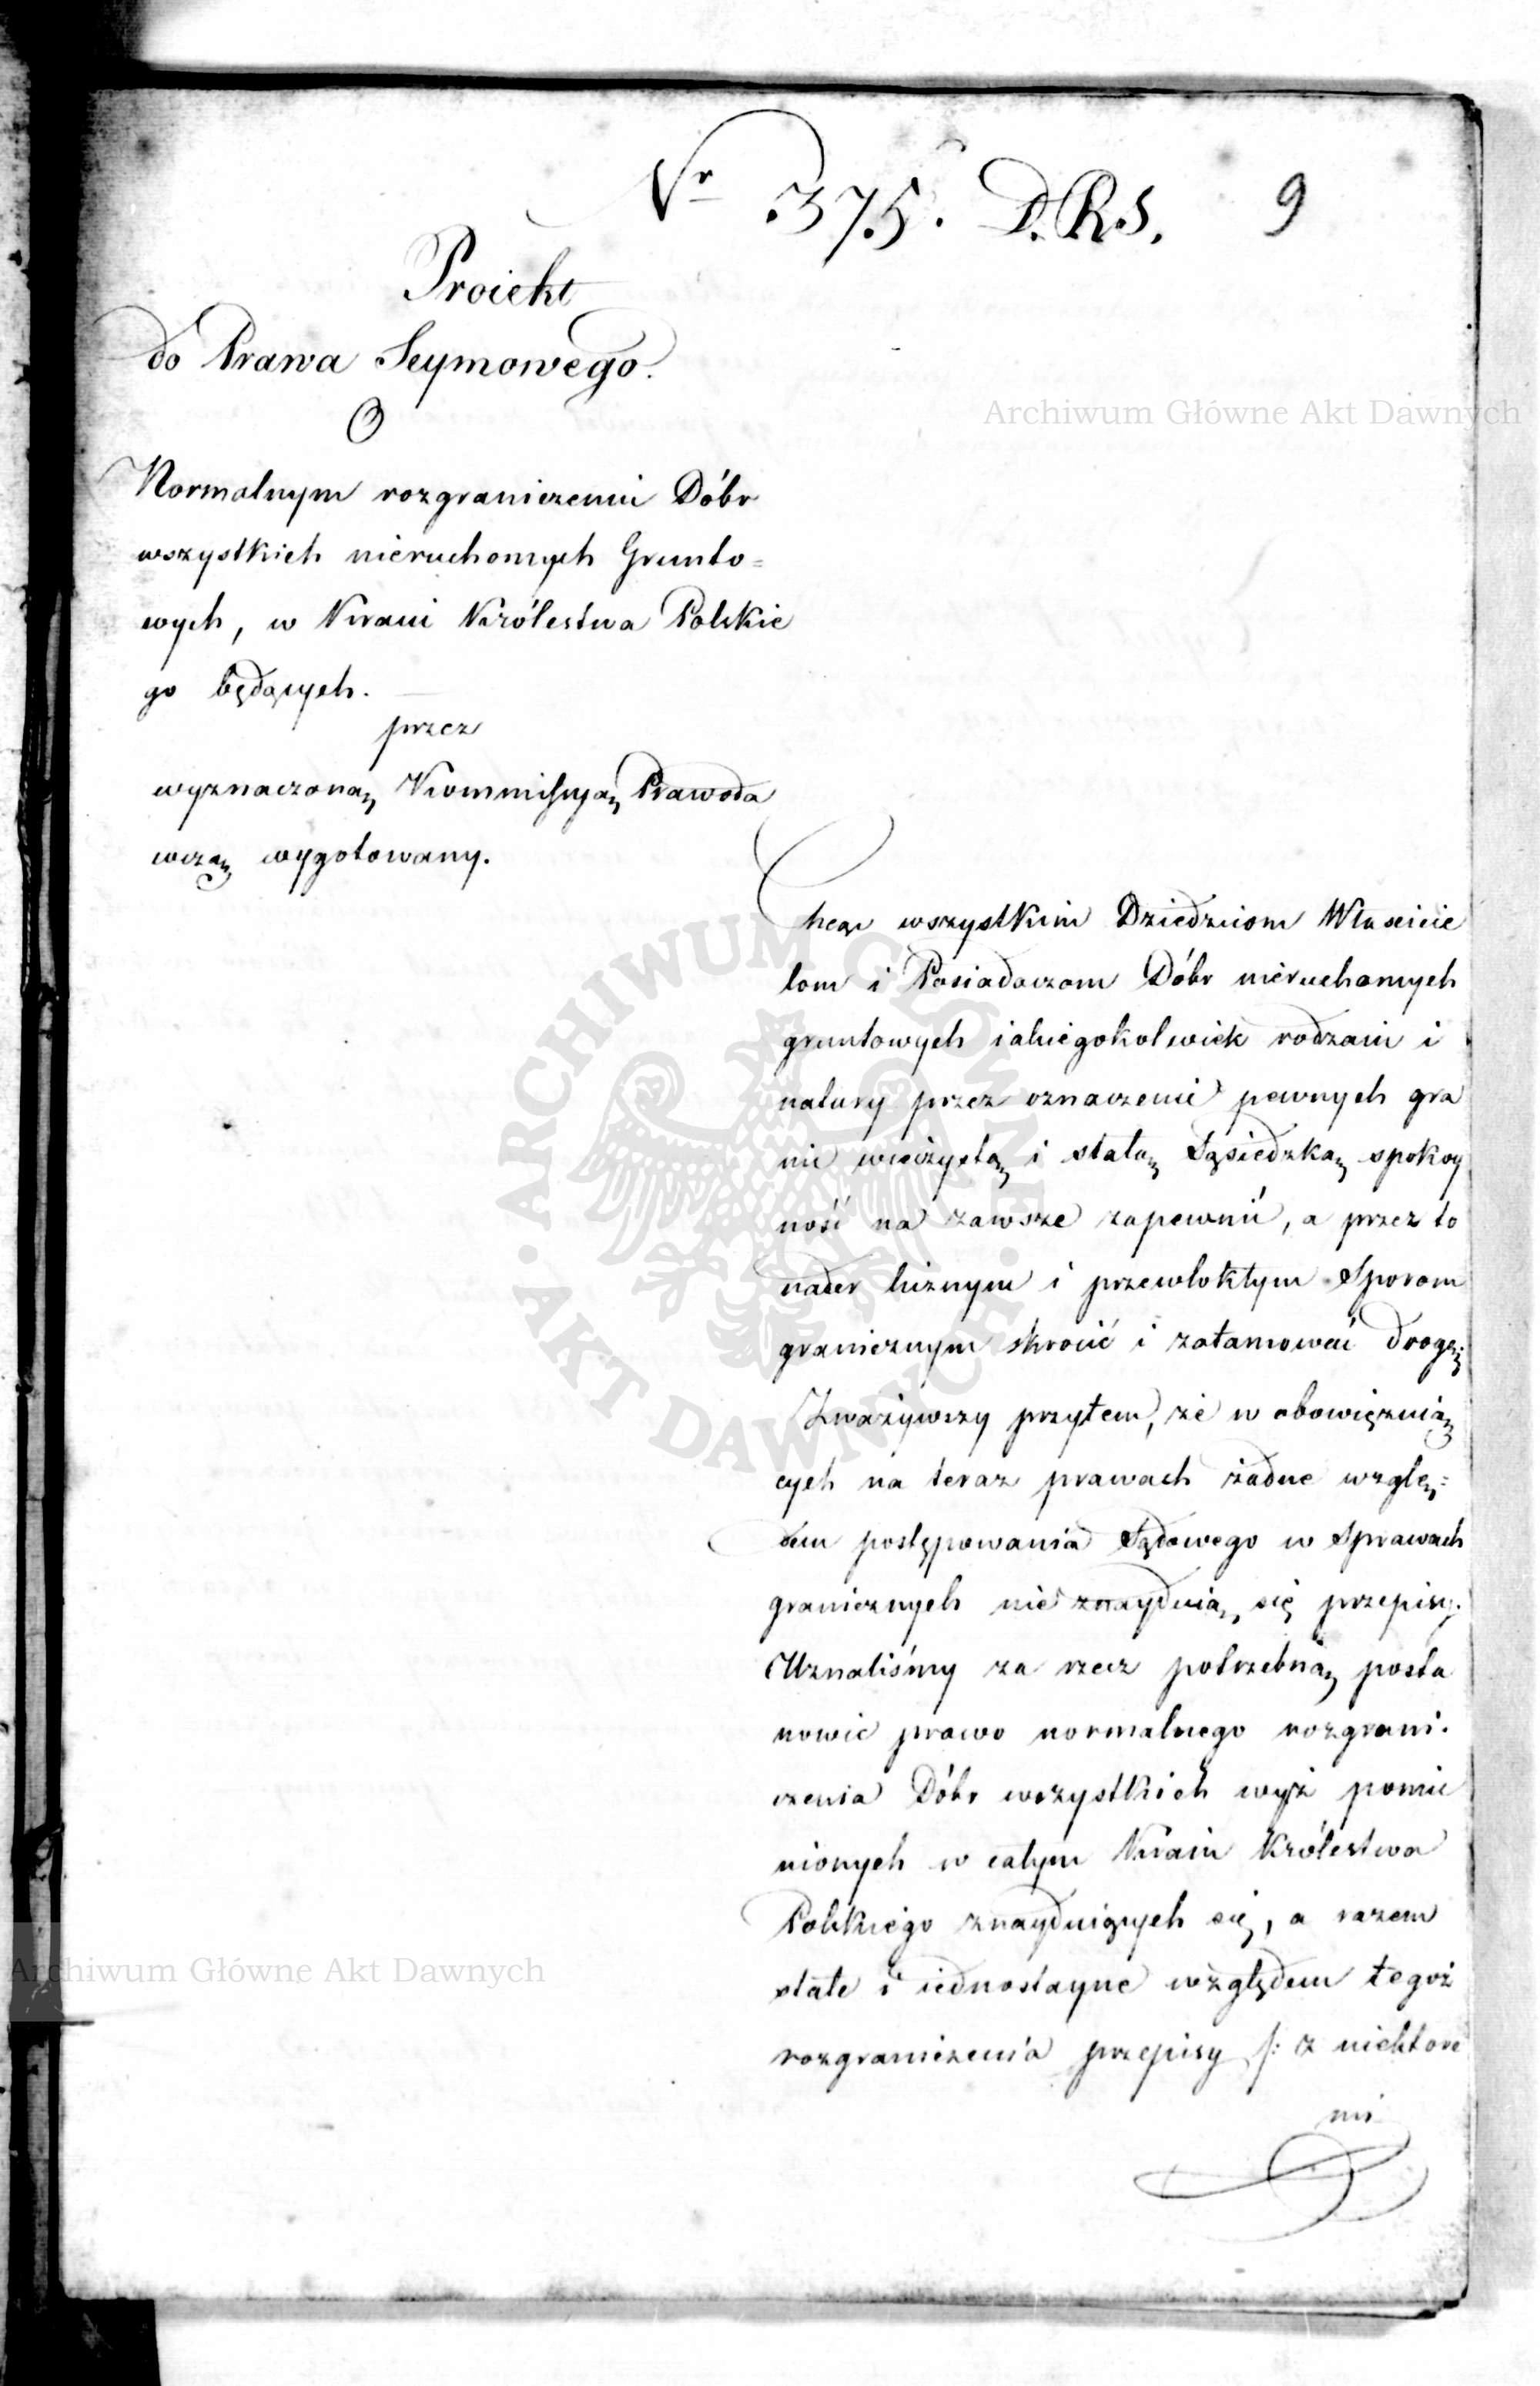 Nr 375. D.R.S. 9
Proiekt
do Prawa Seymowego.
O
Normalnym rozgraniczeniu Dóbr
wszystkich nieruchomych Grunto=
wych, w Kraiu Królestwa Polskie
go będących.
przez
wyznaczoną Kommissyią Prawoda
wczą wygotowany.
Archiwum Główne Akt Dawnych
Chcąc wszystkim Dziedzicom Właścicie
lom i Posiadaczom Dóbr nieruchomych
gruntowych iakiegokolwiek rodzaiu i
natury przez oznaczenie pewnych gra
nic wieczystą i stałą Sąsiedzką spokoy
ność na zawsze zapewnić, a przez to
nader licznym i przewlokłym Sporom
granicznym skrocić i zatamować drogę;
Zważywszy przytem, że w obowięzuią
cych na teraz prawach żadne wzglę=
dem postępowania Sądowego w Sprawach
granicznych nie znayduią się przepisy.
Uznaliśmy za rzecz potrzebną posta
nowić prawo normalnego rozgrani.
czenia Dóbr wszystkich wyż pomie
nionych w całym Kraiu Królestwa
Polskiego znayduiących się, a razem
stałe i iednostayne względem tegoż
rozgraniczenia przepisy /: z niektóre
mi
ARCHIWUM GŁÓWNE · AKT DAWNYCH ·
Archiwum Główne Akt Dawnych